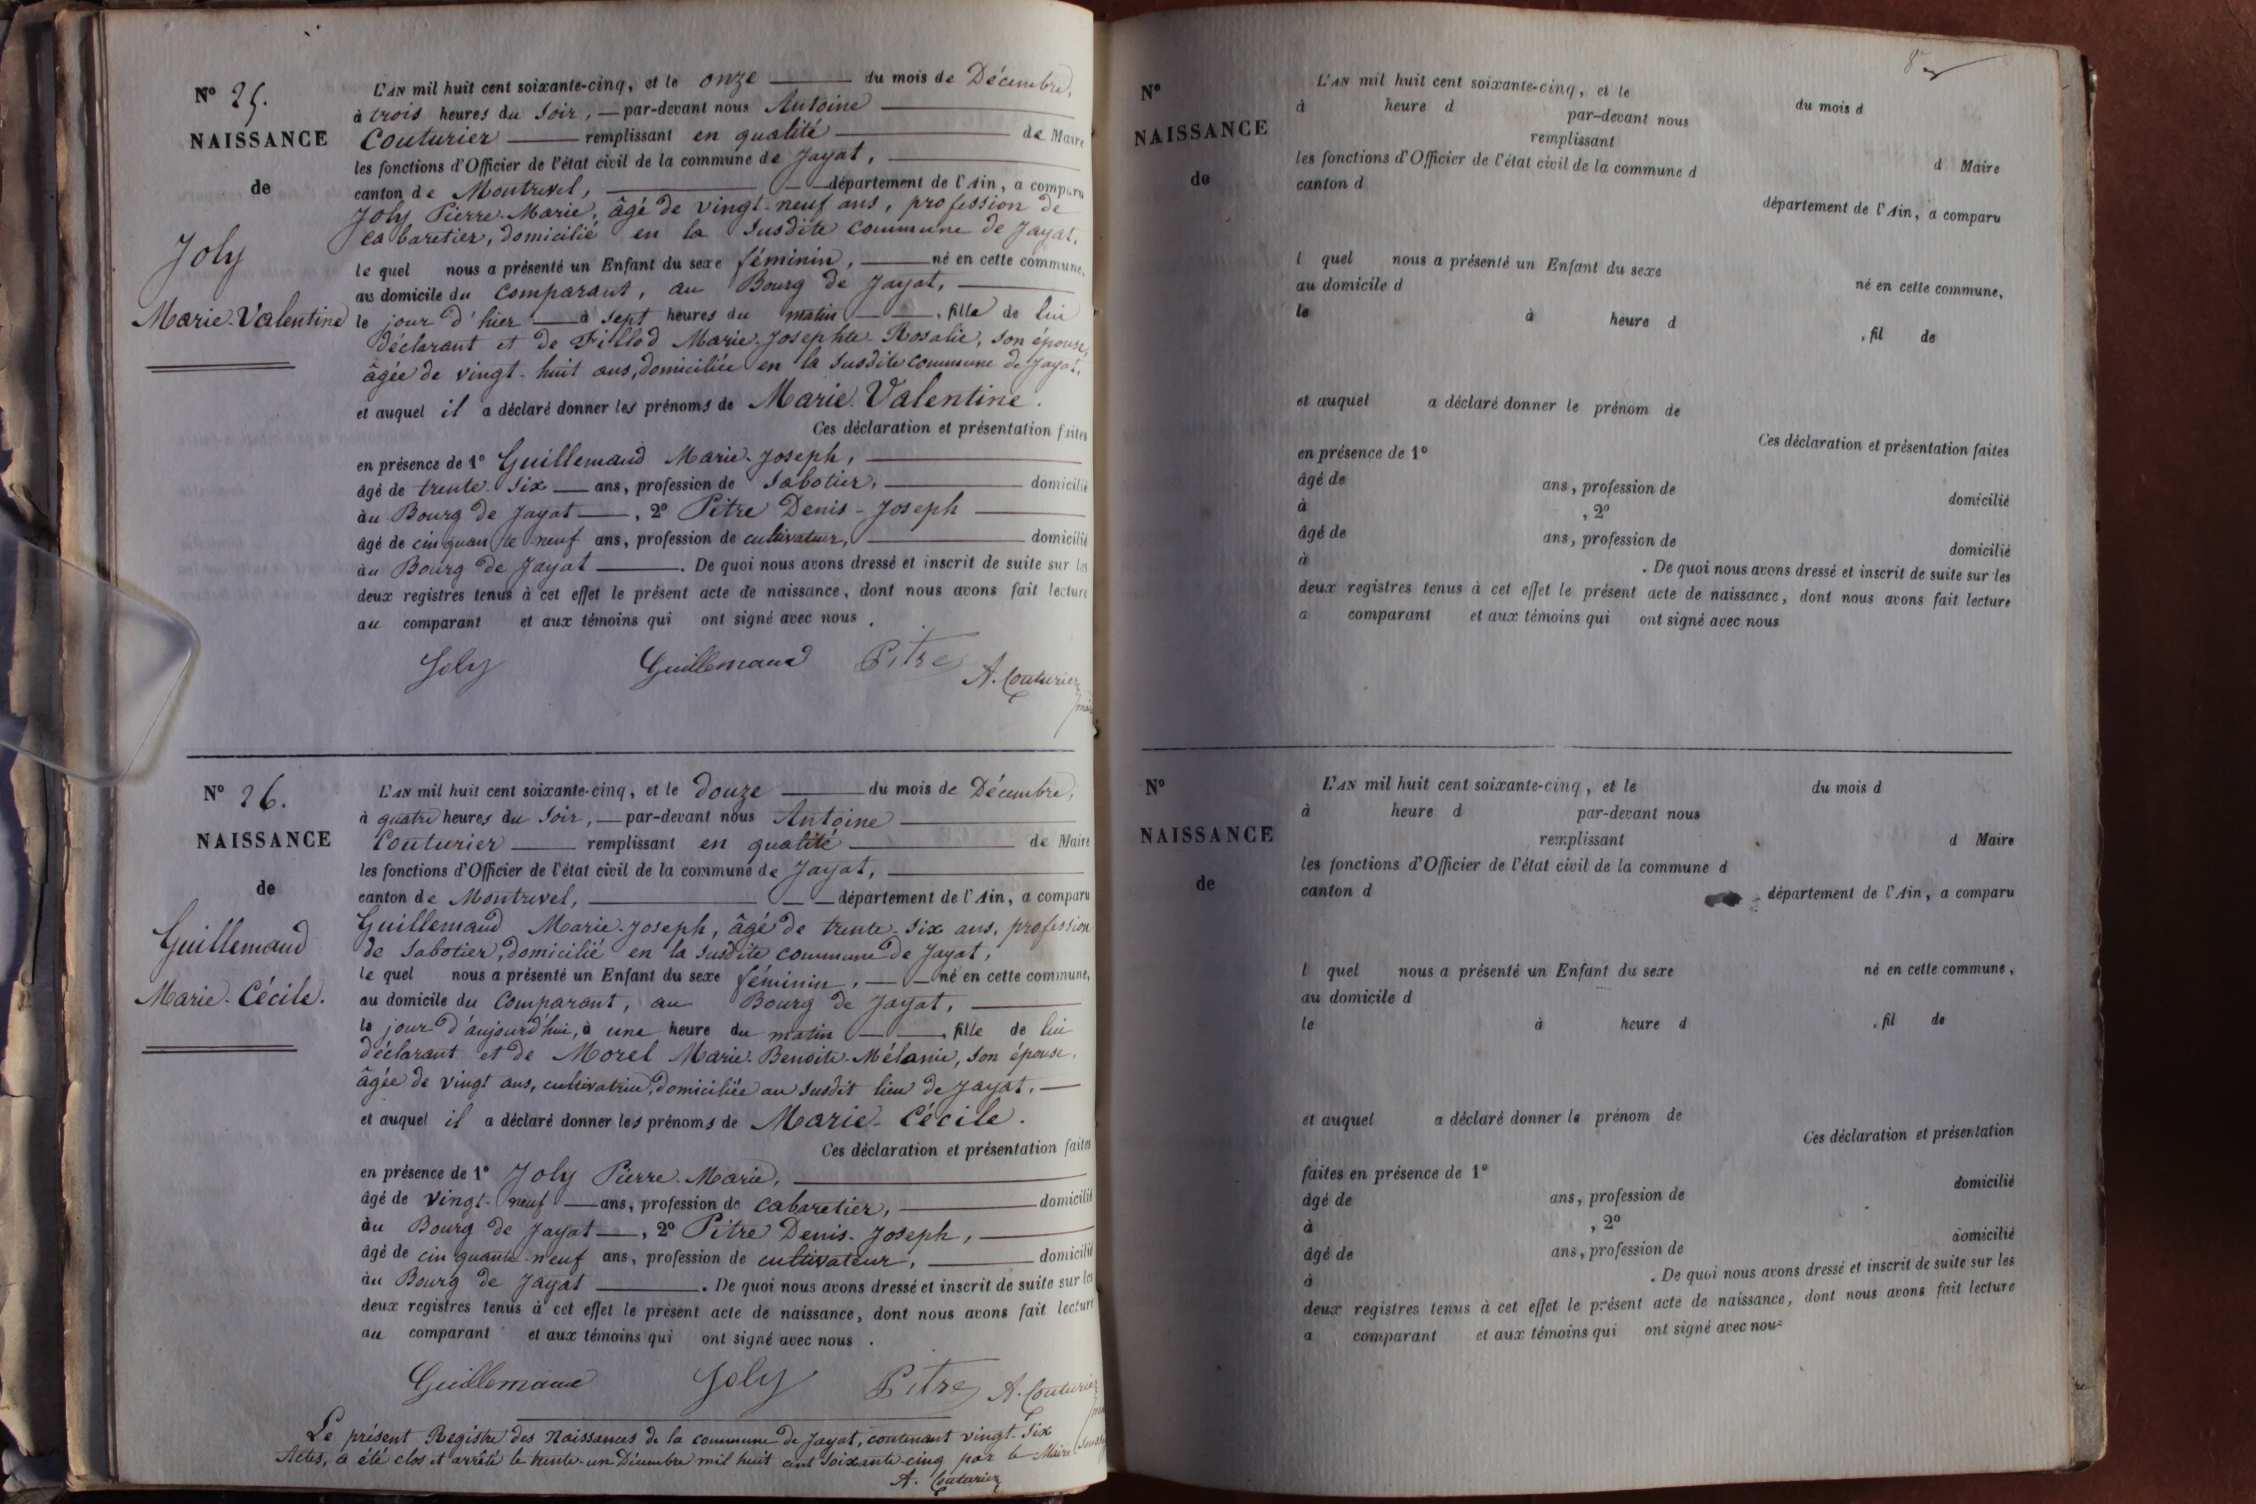 N° 25.
NAISSANCE
de
Joly
Marie-Valentine
L'AN mil huit cent soixante-cinq, et le onze du mois de Décembre,
à trois heures du soir, par-devant nous Antoine
Couturier remplissant en qualité de Maire
les fonctions d'Officier de l'état civil de la commune de Jayat,
canton de Montrevel, département de l'Ain, a comparu
Joly Pierre-Marie, âgé de vingt-neuf ans, profession de
cabaretier, domicilié en la susdite commune de Jayat,
le quel nous a présenté un Enfant du sexe féminin, né en cette commune,
au domicile du comparant, au Bourg de Jayat,
le jour d'hier à sept heures du matin, fille de lui
déclarant et de Fillod Marie-Josephte Rosalie, son épouse,
âgée de vingt-huit ans, domiciliée en la susdite commune de Jayat,
et auquel il a déclaré donner les prénoms de Marie-Valentine.
Ces déclaration et présentation faites
en présence de 1° Guillemaud Marie-Joseph,
âgé de trente-six ans, profession de sabotier, domicilié
au Bourg de Jayat, 2° Pitre Denis-Joseph
âgé de cinquante neuf ans, profession de cultivateur, domicilié
au Bourg de Jayat. De quoi nous avons dressé et inscrit de suite sur les
deux registres tenus à cet effet le présent acte de naissance, dont nous avons fait lecture
au comparant et aux témoins qui ont signé avec nous.
Joly Guillemaud Pitre A. Couturier
maire
N° 26.
NAISSANCE
de
Guillemaud
Marie-Cécile.
L'AN mil huit cent soixante-cinq, et le douze du mois de Décembre,
à quatre heures du soir, par-devant nous Antoine
Couturier remplissant en qualité de Maire
les fonctions d'Officier de l'état civil de la commune de Jayat,
canton de Montrevel, département de l'Ain, a comparu
Guillemaud Marie-Joseph, âgé de trente-six ans, profession
de sabotier, domicilié en la susdite commune de Jayat,
le quel nous a présenté un Enfant du sexe féminin, né en cette commune,
au domicile du comparant, au Bourg de Jayat,
le jour d'aujourd'hui, à une heure du matin, fille de lui
déclarant et de Morel Marie-Benoite-Mélanie, son épouse,
âgée de vingt ans, cultivatrice, domiciliée au susdit lieu de Jayat,
et auquel il a déclaré donner les prénoms de Marie-Cécile.
Ces déclaration et présentation faites
en présence de 1° Joly Pierre-Marie,
âgé de vingt-neuf ans, profession de cabaretier, domicilié
au Bourg de Jayat, 2° Pitre Denis-Joseph,
âgé de cinquante-neuf ans, profession de cultivateur, domicilié
au Bourg de Jayat. De quoi nous avons dressé et inscrit de suite sur les
deux registres tenus à cet effet le présent acte de naissance, dont nous avons fait lecture
au comparant et aux témoins qui ont signé avec nous.
Guillemaud Joly Pitre A. Couturier
Le présent Registre des Naissances de la commune de Jayat, contenant vingt-six
Actes, a été clos et arrêté le trente-un Décembre mil huit cent soixante-cinq par le Maire
A. Couturier
8
N°
NAISSANCE
de
L'AN mil huit cent soixante-cinq, et le du mois d
à heure d par-devant nous
remplissant d Maire
les fonctions d'Officier de l'état civil de la commune d
canton d département de l'Ain, a comparu
l quel nous a présenté un Enfant du sexe né en cette commune,
au domicile d
le à heure d , fil de
et auquel a déclaré donner le prénom de
Ces déclaration et présentation faites
en présence de 1°
âgé de ans, profession de domicilié
à , 2°
âgé de ans, profession de domicilié
à . De quoi nous avons dressé et inscrit de suite sur les
deux registres tenus à cet effet le présent acte de naissance, dont nous avons fait lecture
a comparant et aux témoins qui ont signé avec nous
N°
NAISSANCE
de
L'AN mil huit cent soixante-cinq, et le du mois d
à heure d par-devant nous
remplissant d Maire
les fonctions d'Officier de l'état civil de la commune d
canton d département de l'Ain, a comparu
l quel nous a présenté un Enfant du sexe né en cette commune,
au domicile d
le à heure d , fil de
et auquel a déclaré donner le prénom de
Ces déclaration et présentation
faites en présence de 1°
âgé de ans, profession de domicilié
à , 2°
âgé de ans, profession de domicilié
à . De quoi nous avons dressé et inscrit de suite sur les
deux registres tenus à cet effet le présent acte de naissance, dont nous avons fait lecture
a comparant et aux témoins qui ont signé avec nous